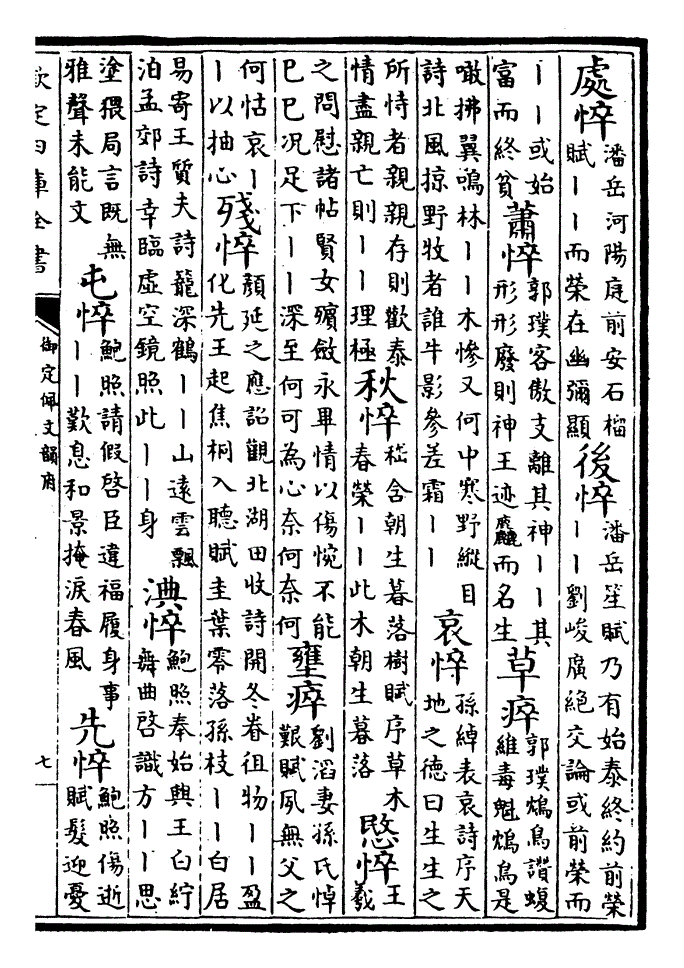 處悴潘岳河陽庭前安石榴賦丨丨而榮在幽彌顯後悴潘岳笙賦乃有始泰終約前榮丨丨劉峻廣絶交論或前榮而
丨丨或始富而終貧蕭悴郭璞客傲支離其神丨丨其形形廢則神王迹麤而名生草瘁郭璞鴆鳥讚蝮維毒魁鴆鳥是
噉拂翼鳴林丨丨木慘又何中寒野縱目詩北風掠野牧者誰牛影參差霜丨丨哀悴孫綽表哀詩序天地之德曰生生之
所恃者親親存則歡泰情盡親亡則丨丨理極秋悴嵇含朝生暮落樹賦序草木春榮丨丨此木朝生暮落愍悴王羲
之問慰諸帖賢女殯斂永畢情以傷惋不能已已况足下丨丨深至何可為心奈何奈何壅瘁劉滔妻孫氏悼艱賦夙無父之
何怙哀丨丨以抽心殘悴顔延之應詔觀北湖田收詩開冬眷徂物丨丨盈化先王起焦桐入聽賦圭葉零落孫枝丨丨白居
易寄王質夫詩籠深鶴丨丨山遠雲飄泊孟郊詩幸臨虛空鏡照此丨丨身淟悴鮑照奉始興王白紵舞曲啓識方丨丨思
塗猥局言既無雅聲未能文屯悴鮑照請假啓臣違福履身事丨丨歎息和景掩淚春風先悴鮑照傷逝賦髮迎憂
欽定四庫全書
御定佩文韻府
七